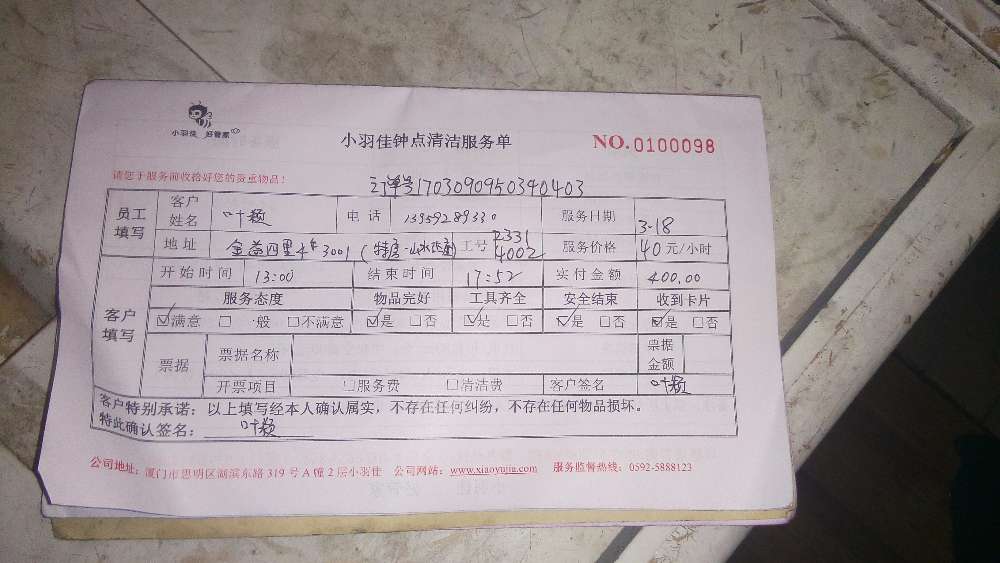 小羽佳 好管家
小羽佳钟点清洁服务单
NO.0100098
请您于服务前收拾好您的贵重物品！
订单号1703090950340403
员工填写 客户姓名 叶颖 电话 13959289330 服务日期 3.18
地址 3001 工号 2331 4002 服务价格 40元/小时
客户填写 开始时间 13:00 结束时间 17:52 实付金额 400.00
服务态度 物品完好 工具齐全 安全结束 收到卡片
☑满意 □一般 □不满意 ☑是 □否 ☑是 □否 ☑是 □否 ☑是 □否
票据 票据名称 票据金额
开票项目 □服务费 □清洁费 客户签名 叶颖
客户特别承诺：以上填写经本人确认属实，不存在任何纠纷，不存在任何物品损坏。
特此确认签名： 叶颖
公司地址：厦门市思明区湖滨东路319号A幢2层小羽佳 公司网站：www.xiaoyujia.com 服务监督热线：0592-5888123